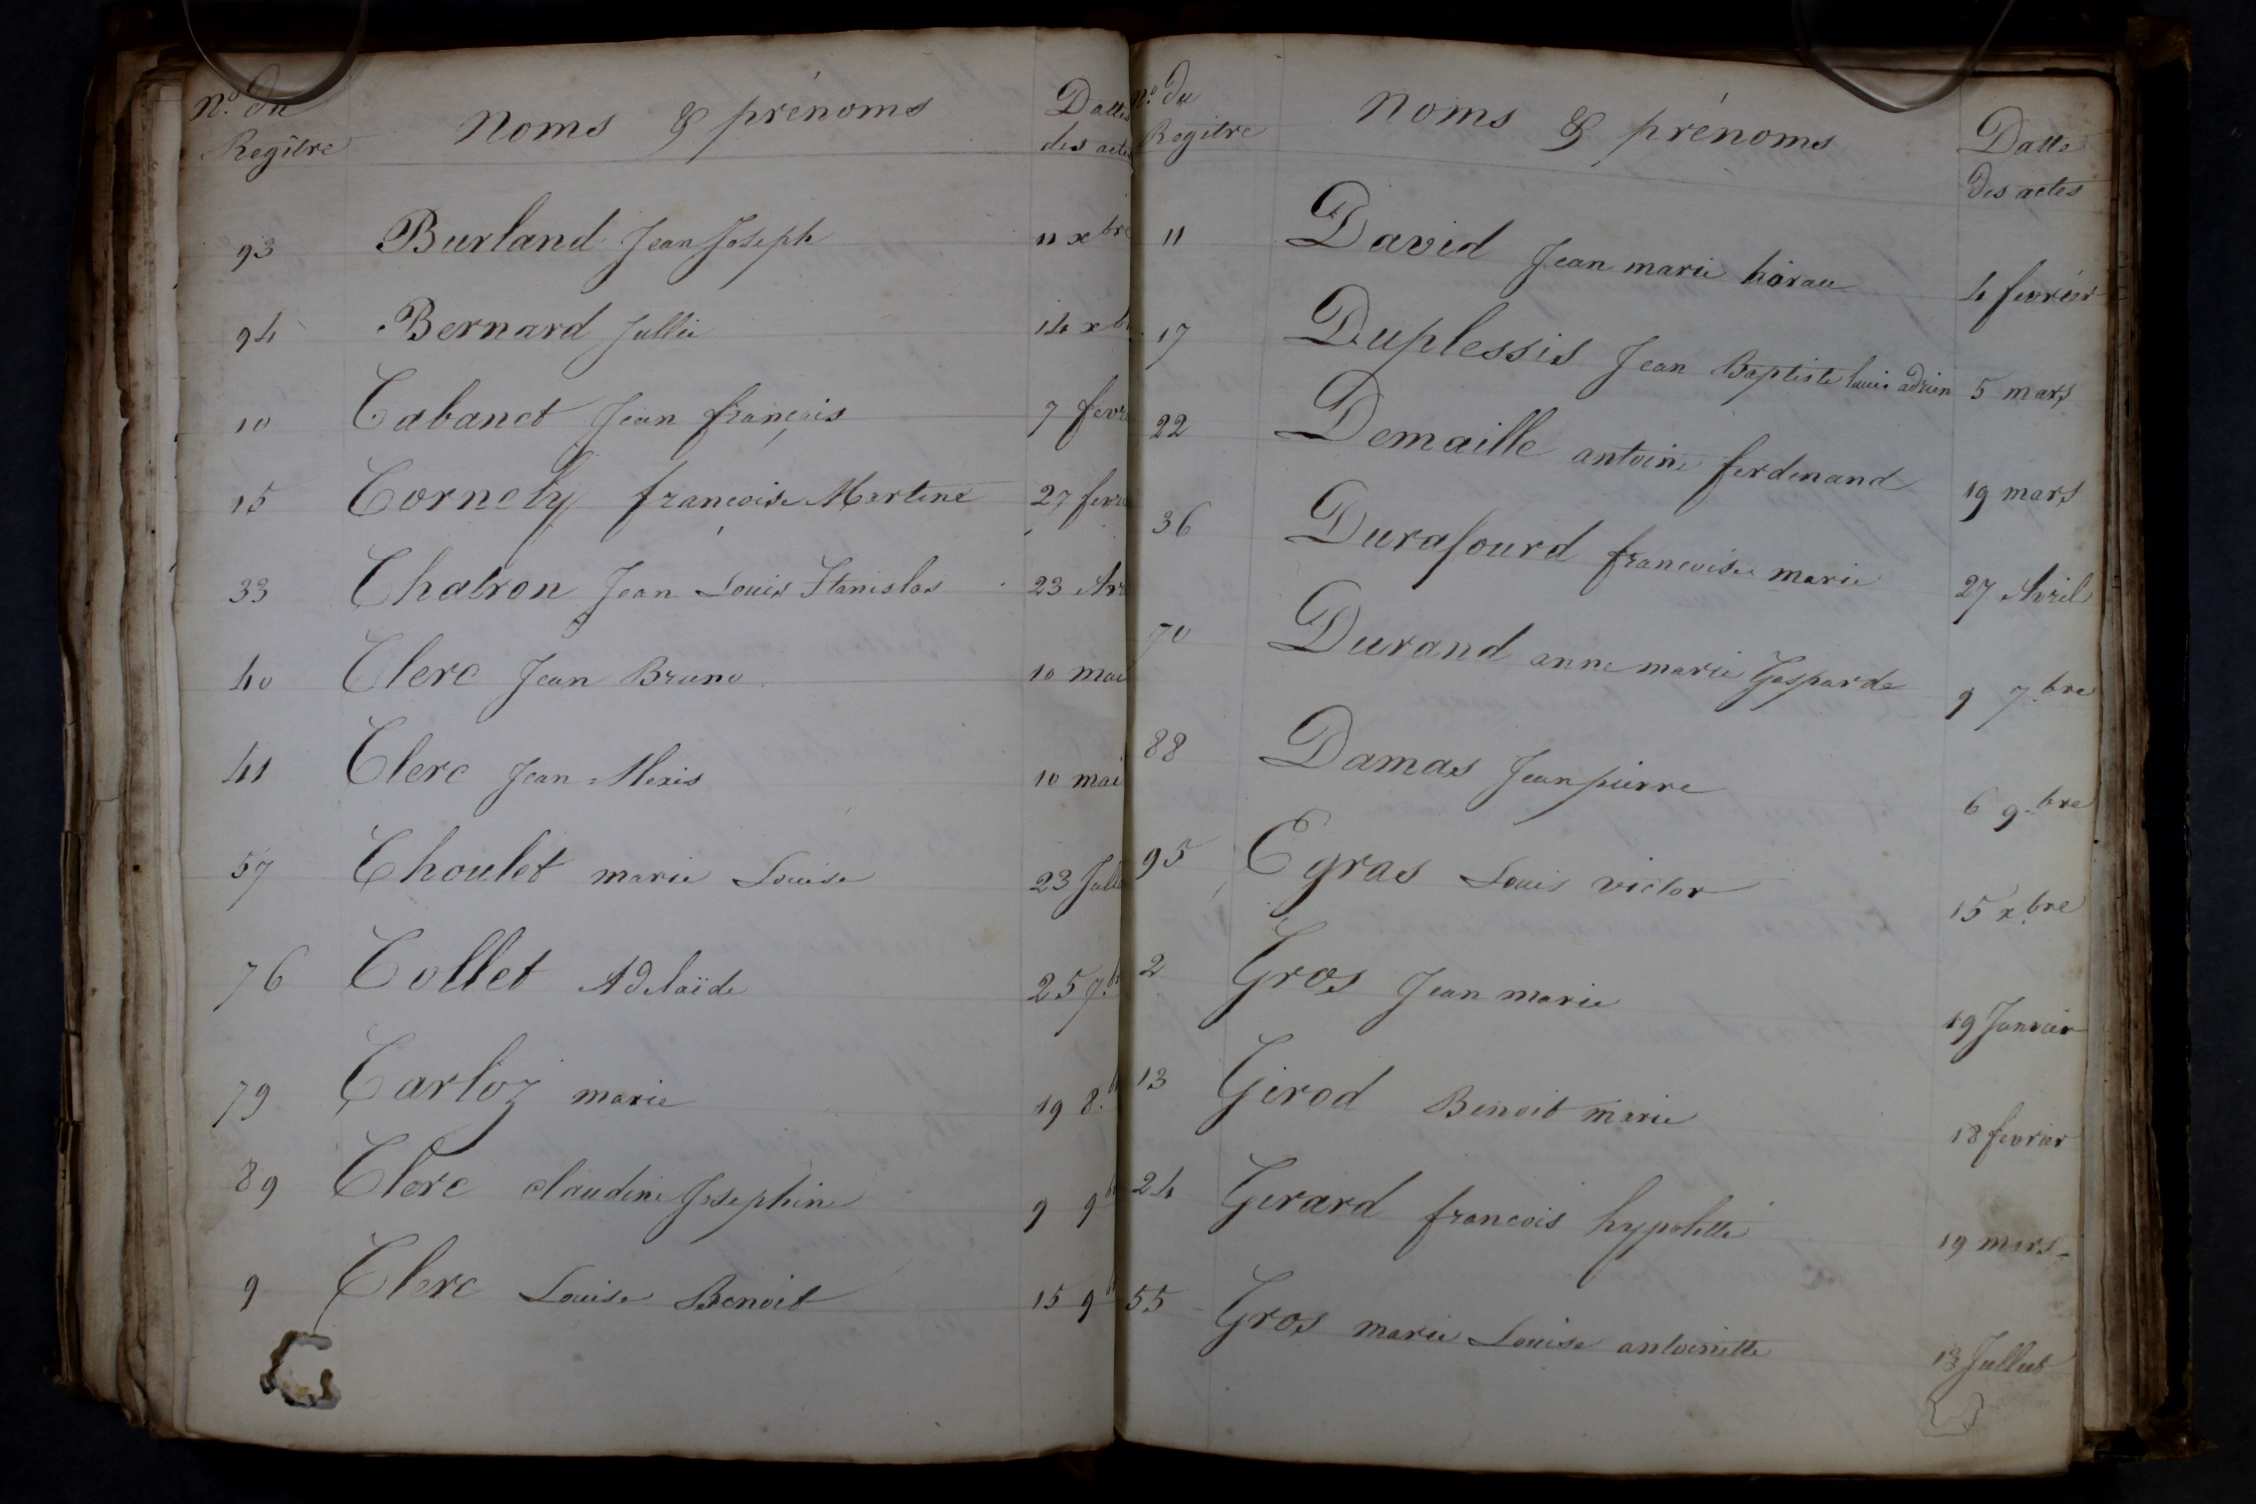 N.º du
Regître
Noms & prénoms
Dattes
des actes
93 Burland Jean Joseph 11 xbre
94 Bernard Jullie 14 xb
10 Cabanet Jean françois 7 fevr
15 Cornely françoise Martine 27 fevr
33 Chatron Jean Louis Stanislas 23 Avr
40 Clerc Jean Bruno 10 mai
41 Clerc Jean Alexis 10 mai
57 Choulet marie Louise 23 Jull
76 Collet Adelaïde 25 7.b
79 Carloz marie 19 8.b
89 Clerc claudine Josephine 9 9b
9 Clerc Louise Benoit 15 9b
N.º du
Regître
Noms & prénoms
Datte
des actes
11 David Jean marie 4 fevrier
17 Duplessis Jean Baptiste louis adrien 5 mars
22 Demaille antoine ferdinand 19 mars
36 Durafourd francoise marie 27 Avril
70 Durand anne marie Gasparde 9 7.bre
88 Damas Jean pierre 6 9.bre
95 Egras Louis victor 15 x.bre
2 Gros Jean marie 19 Janvier
13 Girod Benoit marie 18 fevrier
24 Girard francois hypolitte 19 mars
55 Gros marie Louise antoinette 13 Jullet